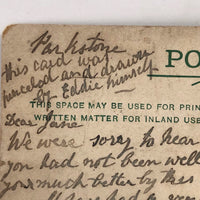 Parkstone
This card was
penceled and drawn
by Eddie himself
PO
THIS SPACE MAY BE USED FOR PRIN
WRITTEN MATTER FOR INLAND USE
Dear Jane
We were sorry to hear
you had not been well
you much better by this